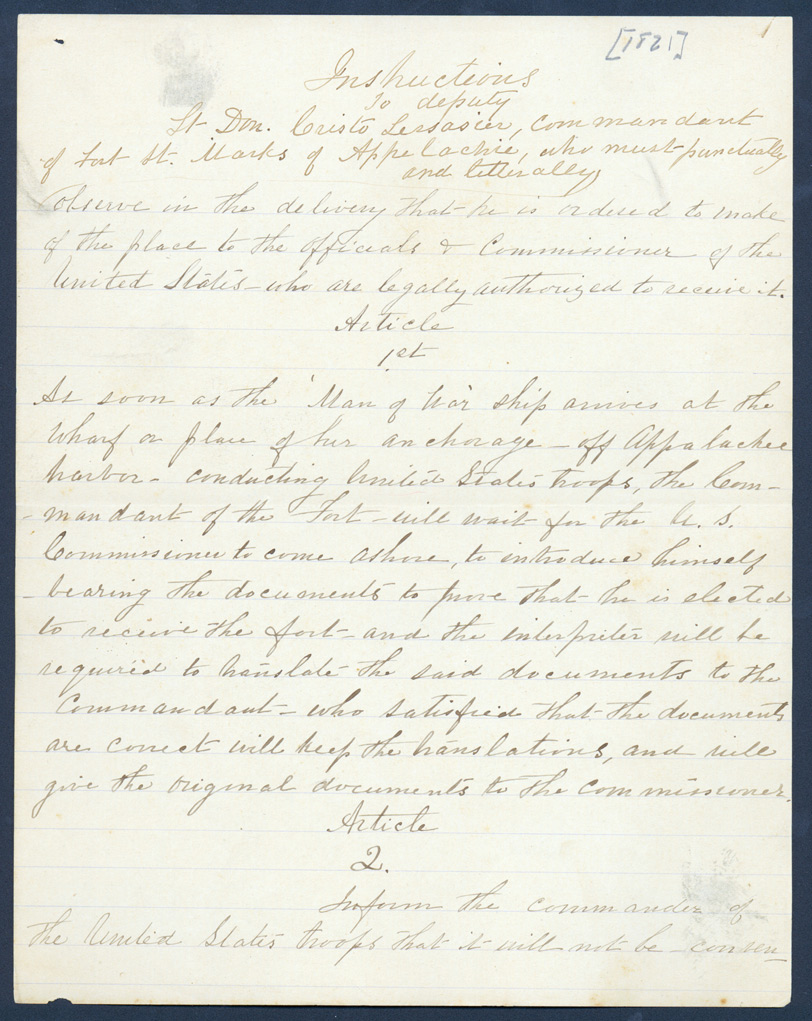 [1821]
Instructions
To deputy
Lt Don. Cristo Lessasier, commandant
of Fort St. Marks of Appelachie, who must punctually
and litterally,
observe in the delivery that he is ordered to make
of the place to the officials & Commissioner of the
United States - who are legally authorized to receive it.
Article
1st
As soon as the 'Man of War' ship arrives at the
wharf or place of her anchorage - off Appalachee
harbor - conducting United States troops, the Com-
-mandant of the Fort - will wait for the U. S.
Commissioner to come ashore, to introduce himself
- bearing the documents to prove that he is elected
to receive the fort - and the interpreter will be
required to translate the said documents to the
Commandant - who satisfied that the documents
are correct will keep the translations, and will
give the original documents to the commissioner.
Article
2.
Inform the commander of
the United States troops that it will not be consen-